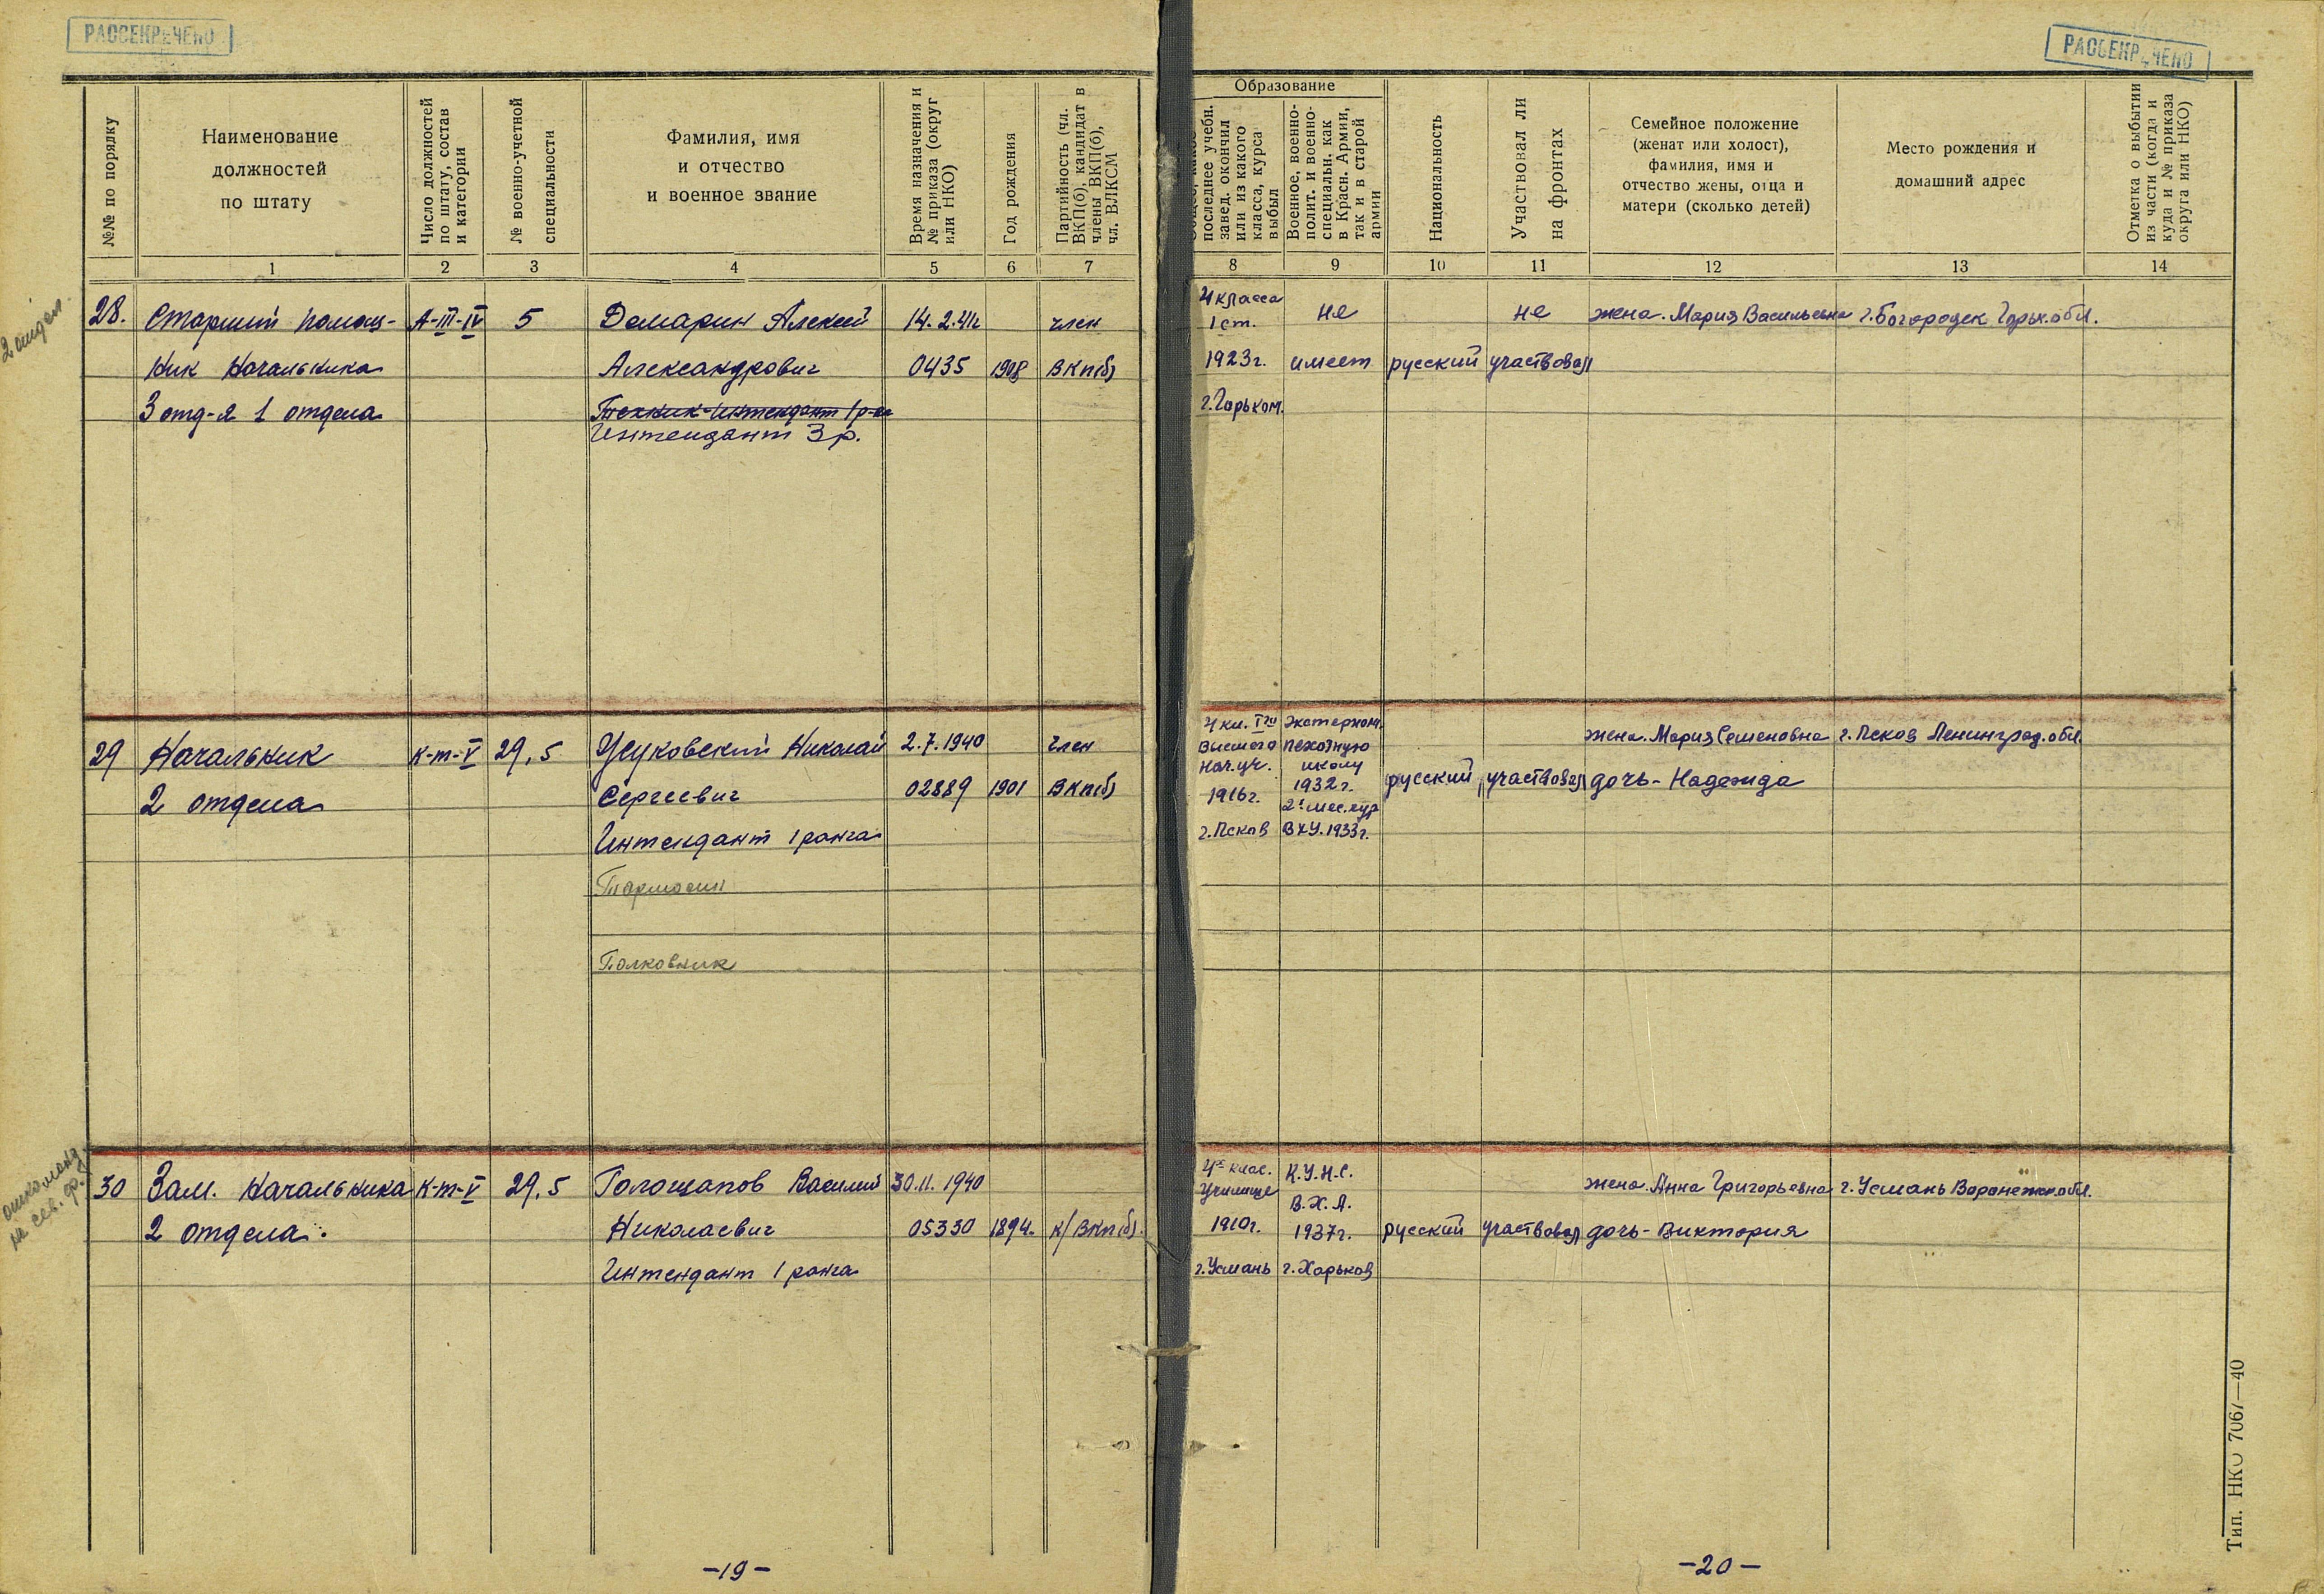 РАССЕКРЕЧЕНО
№№ по порядку
Наименование
должностей
по штату
Число должностей
по штату, состав
и категории
№ военно-учетной
специальности
Фамилия, имя
и отчество
и военное звание
Время назначения и
№ приказа (округ
или НКО)
Год рождения
Партийность (чл.
ВКП(б), кандидат в
члены ВКП(б),
чл. ВЛКСМ
1 2 3 4 5 6 7
2 отдел.
28. Старший помощ- А-III-IV 5 Демарин Алексей 14.2.41г член
ник Начальника Александрович 0435 1908 ВКП(б)
3 отд-я 1 отдела Техник-Интендант 1 р-га
Интендант 3 р.
29 Начальник К-т-V 29,5 Жуковский Николай 2.7.1940 член
2 отдела Сергеевич 02889 1901 ВКП(б)
Интендант 1 ранга
Полковник
30 Зам. Начальника К-т-V 29,5 Голощапов Василий 30.11.1940
2 отдела. Николаевич 05330 1894. К/ВКП(б).
Интендант 1 ранга
на сев. фр.
-19-
РАССЕКРЕЧЕНО
Образование
последнее учебн.
завед. окончил
или из какого
класса, курса
выбыл
Военное, военно-
полит. и военно-
специальн. как
в Красн. Армии,
так и в старой
армии
Национальность
Участвовал ли
на фронтах
Семейное положение
(женат или холост),
фамилия, имя и
отчество жены, отца и
матери (сколько детей)
Место рождения и
домашний адрес
Отметка о выбытии
из части (когда и
куда и № приказа
округа или НКО)
8 9 10 11 12 13 14
4 класса
1 ст. не не жена. Мария Васильевна г. Богородск Горьк. обл.
1923г. имеет русский участвовал
г. Горьком.
4 кл. Экстерном.
Высшего пехотную жена. Мария Семеновна г. Псков Ленинград. обл.
нач. уч. школу
1916г. 1932г. русский участвовал дочь - Надежда
2х мес. кур
г. Псков ВХУ. 1933г.
4х клас. К.У.Н.С.
Училище В.Х.А. жена. Анна Григорьевна г. Усмань Воронежск. обл.
1910г. 1937г. русский участвовал дочь - Виктория
г. Усмань г. Харьков
Тип. НКО 7067—40
-20-